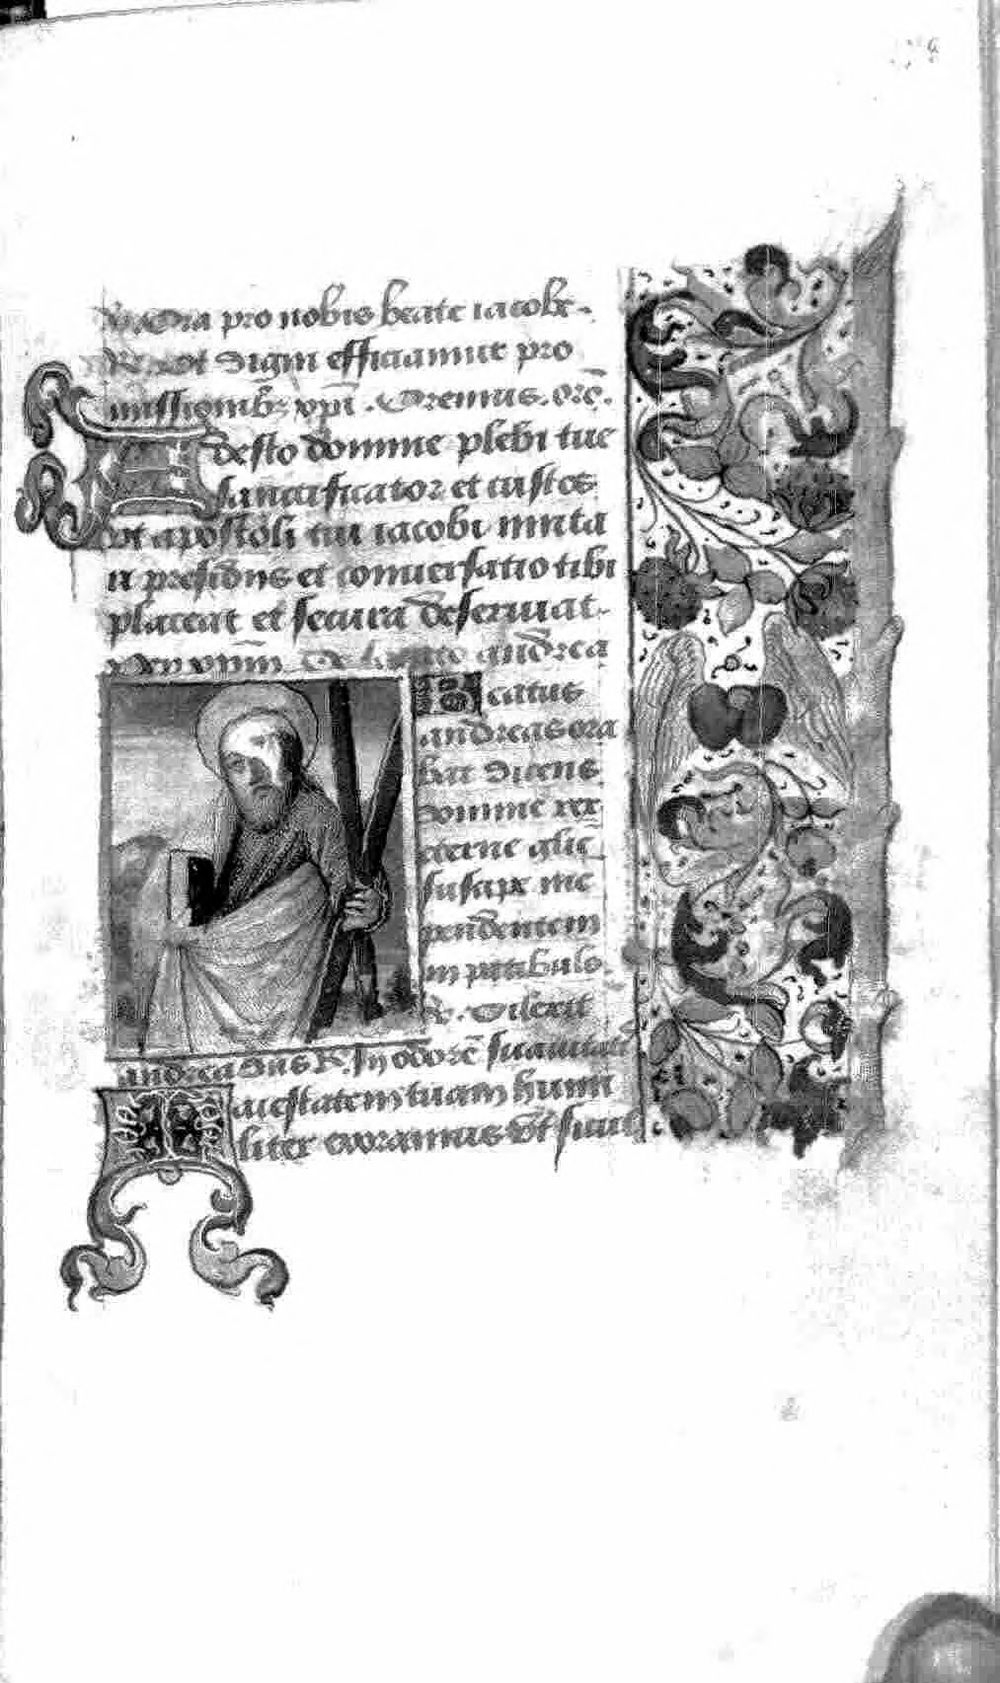 Ora pro nobis beate iacobe.
Ut digni efficiamur pro
missionib3 xpi. Oremus. orẽ.
Adesto domine plebi tue
sanctificator et custos
ut apostoli tui iacobi munita
presidiis et conuersatio tibi
placeat et secura deseruiat.
per xpm De sancto andrea
Beatus
andreas ora
bat dicens
domine rex
eterne glie
suscipe me
pendentem
in patibulo.
R. Dilexit
andrea dns R. In odorẽ suauitatẽ
Maiestatem tuam humi
liter exoramus ut sicut